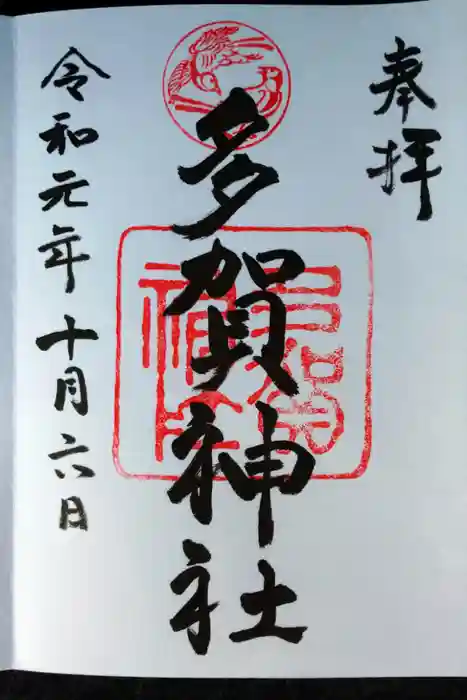 奉拝
多賀神社
令和元年十月六日